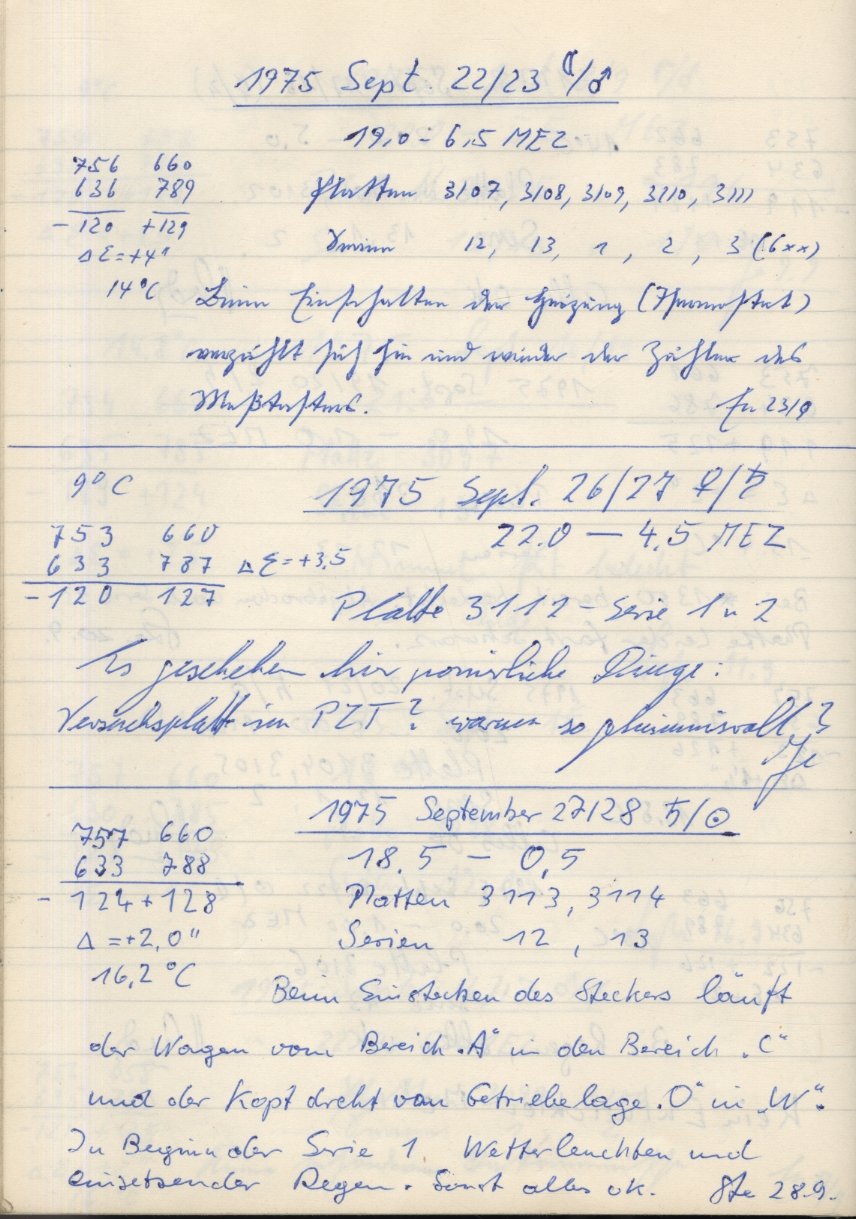 1975 Sept. 22/23 ☾/♂
19,0 - 6,5 MEZ
756 660
636 789
-120 +129
Δε=+4"
14°C
Platten 3107, 3108, 3109, 3110, 3111
Serien 12, 13, 1, 2, 3 (6xx)
Beim Einschalten der Heizung (Thermostat)
verzählt sich hin und wieder der Zähler des
Meßtasters. 23/9
9°C
1975 Sept. 26/27 ♀/♄
22.0 — 4.5 MEZ
753 660
633 787 Δε=+3,5
-120 127
Platte 3112 - Serie 1 u 2
Es geschehen hier Dinge:
Versuchsplatte im PZT? warum so geheimnisvoll?
1975 September 27/28 ♄/☉
757 660
633 788
-124 +128
Δ=+2,0"
16,2°C
18.5 - 0,5
Platten 3113, 3114
Serien 12, 13
Beim Einstecken des Steckers läuft
der Wagen vom Bereich „A" in den Bereich „C"
und der Kopf dreht von Betriebslage „O" in „W".
Zu Beginn der Serie 1 Wetterleuchten und
einsetzender Regen. Sonst alles ok. Ste 28.9.